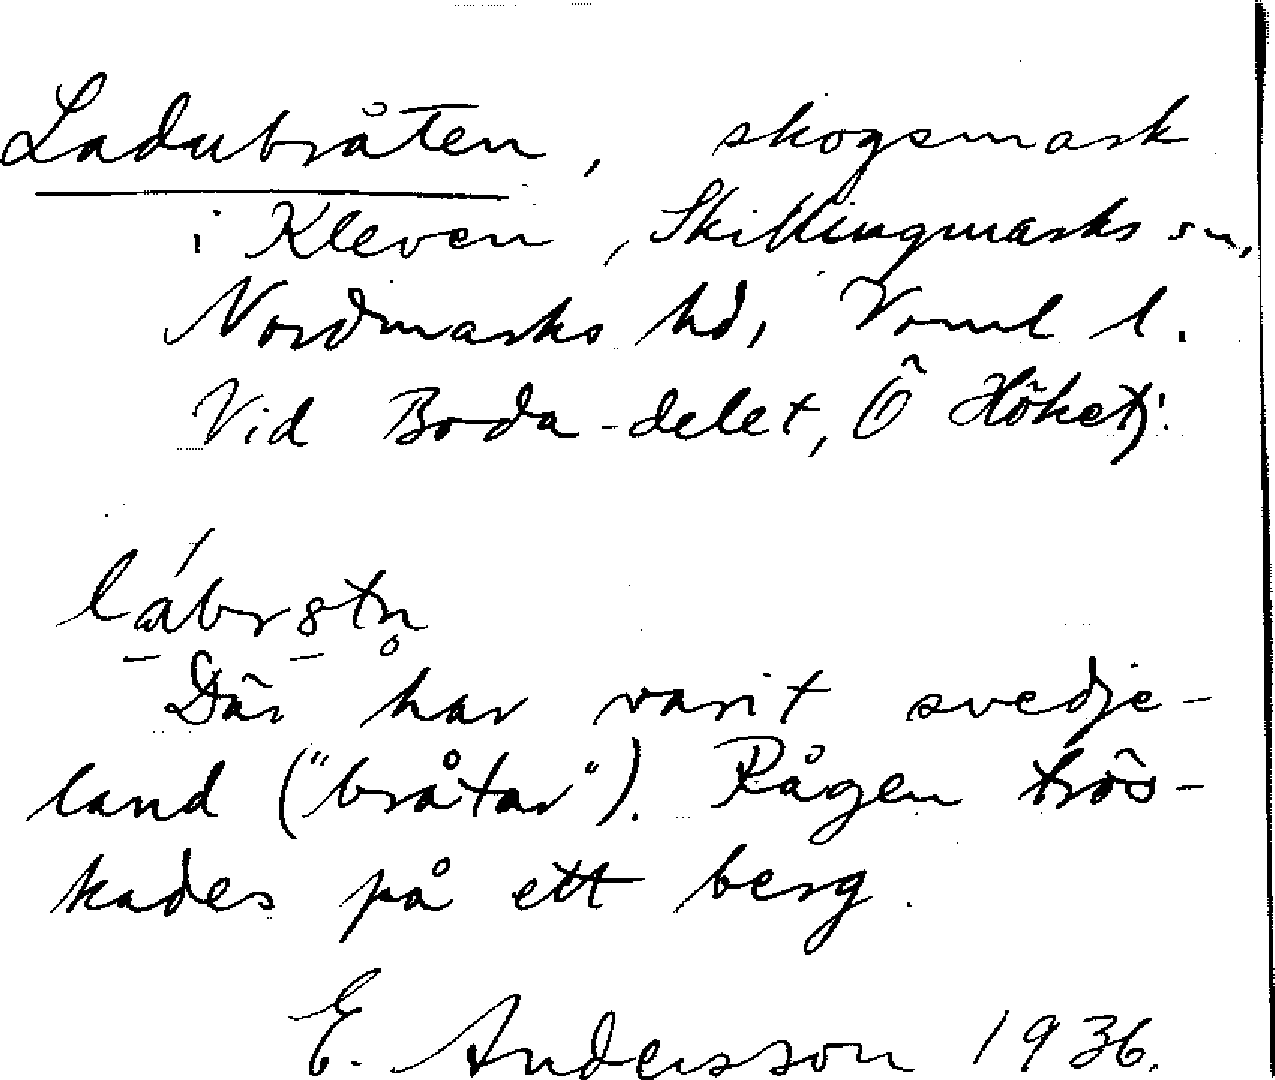 Ladubråten, skogsmark
i Kleven, Skillingmarks sn,
Nordmarks hd, Värml l.
Vid Boda-delet, Ö Höket);
lábrstn
Där har varit svedje-
land ("bråtar"). Rågen trös-
kades på ett berg.
E. Andersson 1936.